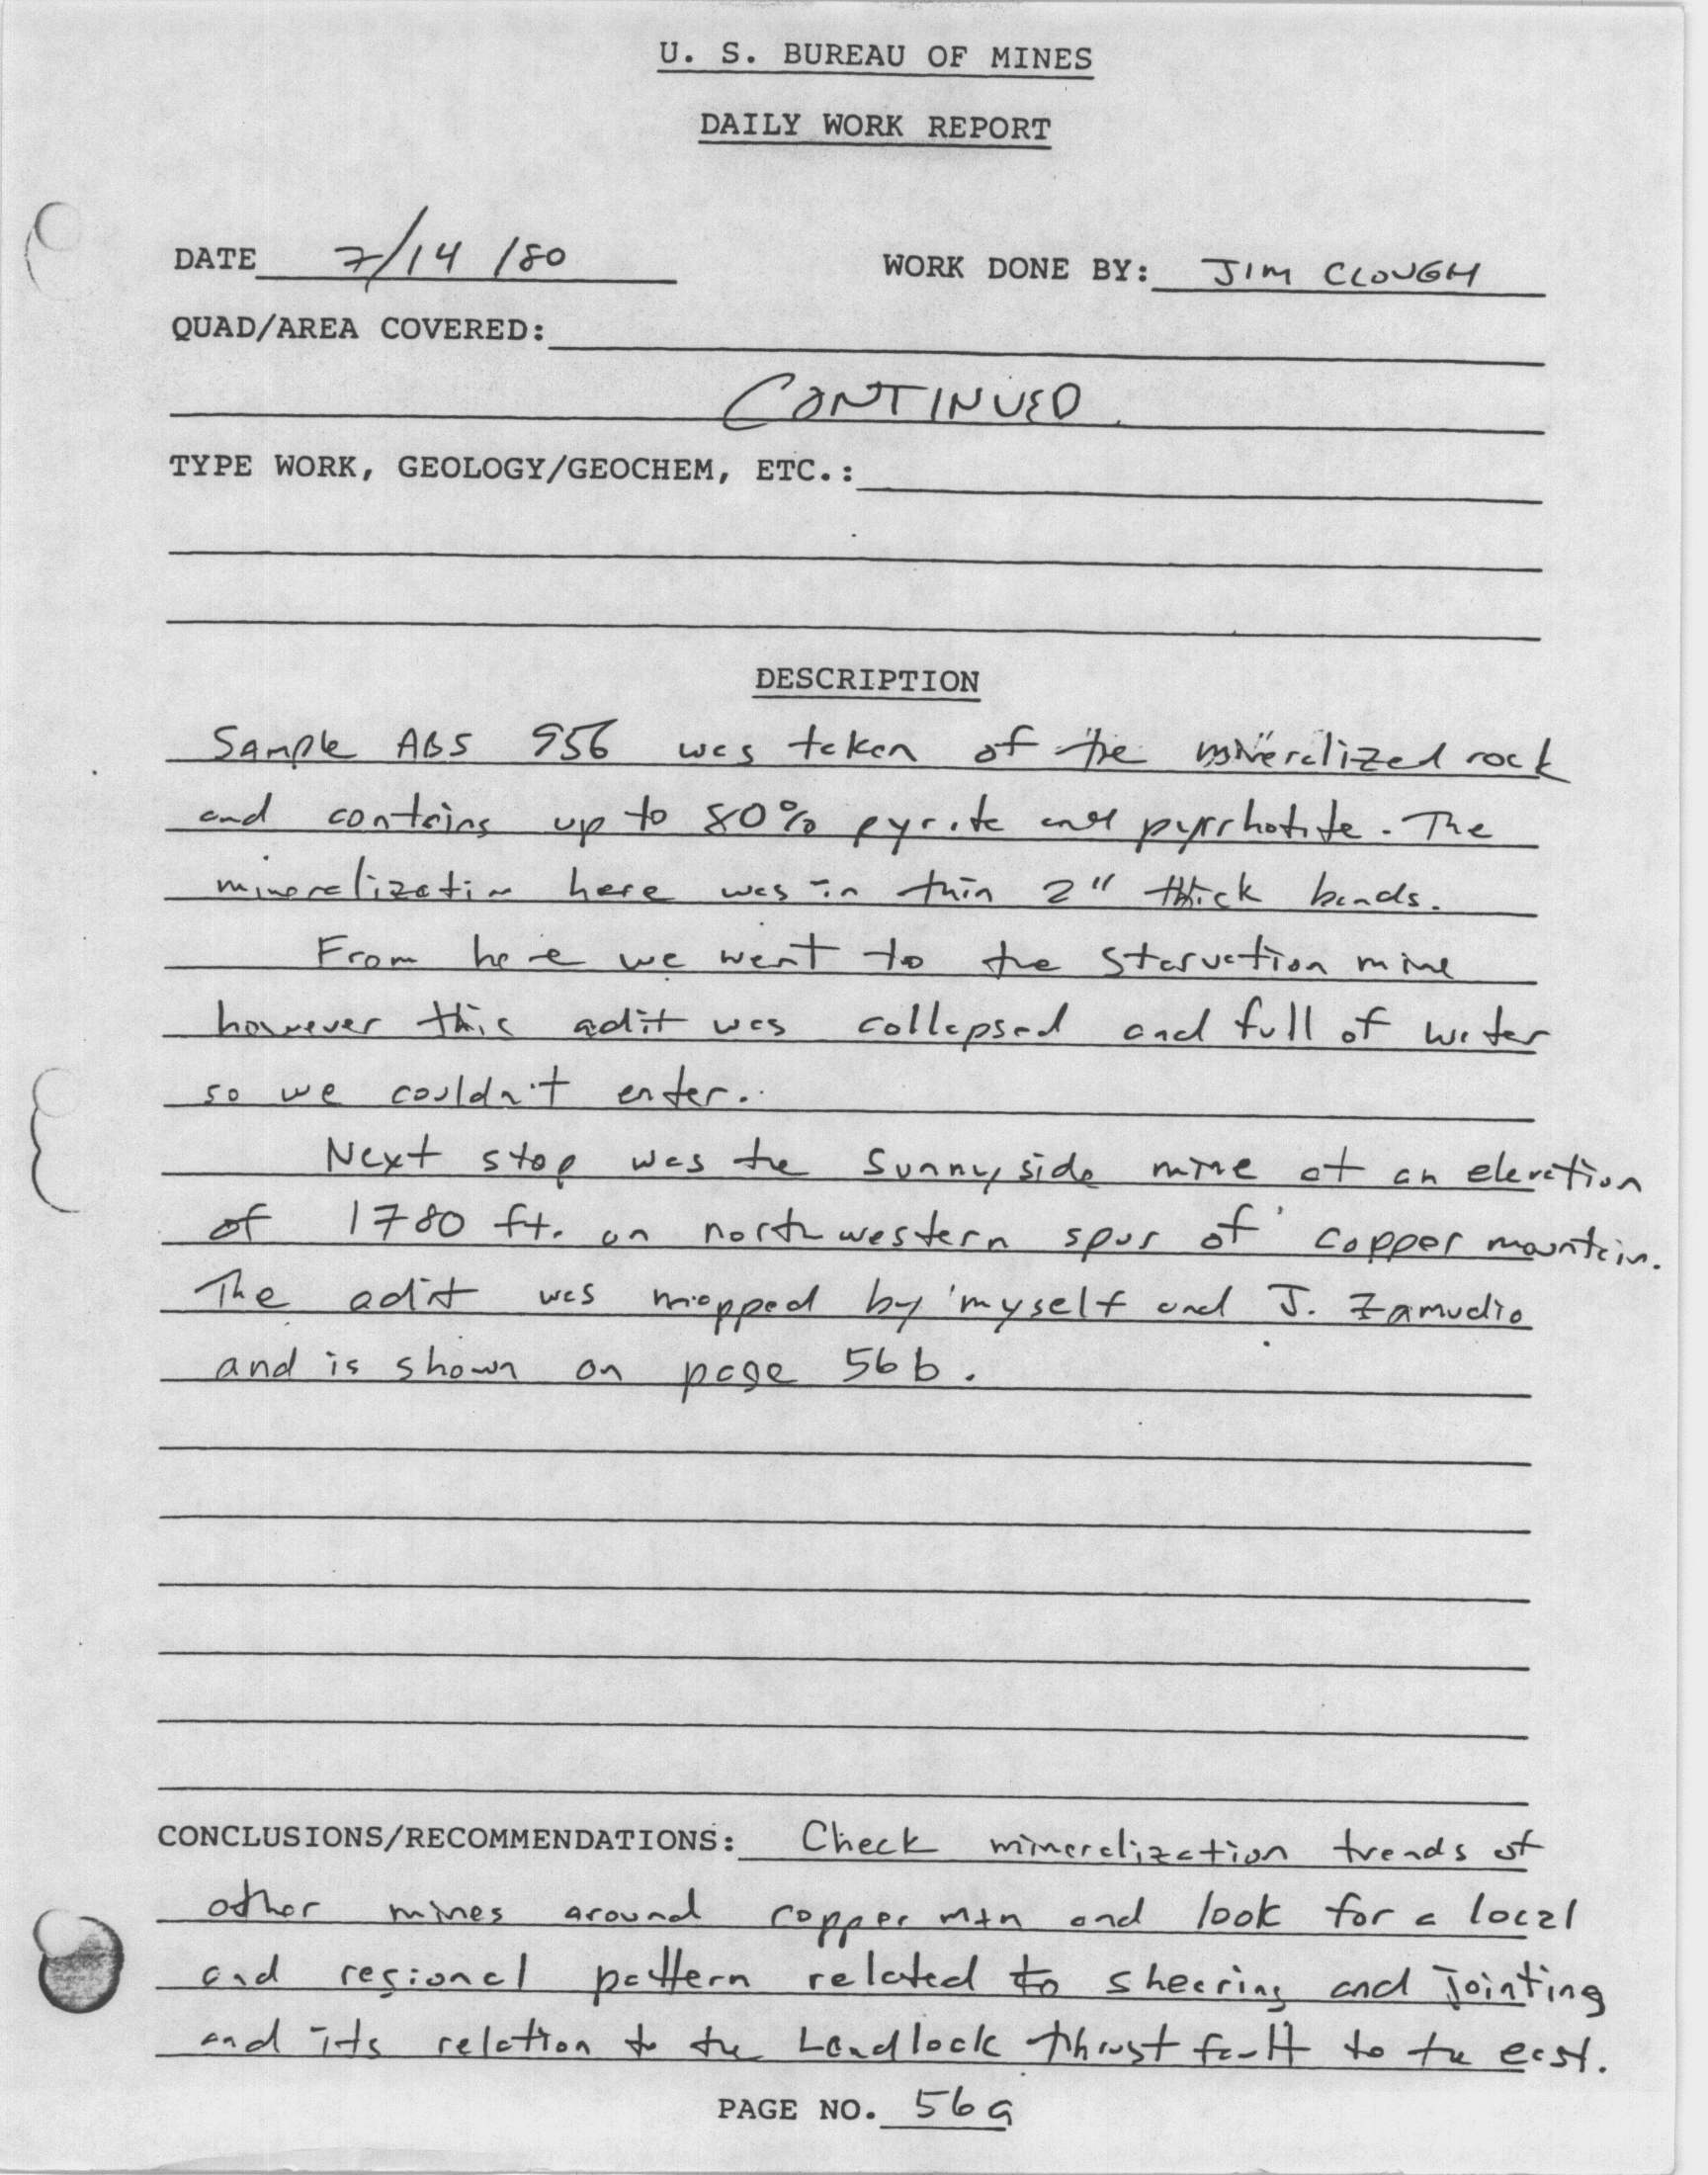 U. S. BUREAU OF MINES
DAILY WORK REPORT
DATE 7/14/80 WORK DONE BY: JIM CLOUGH
QUAD/AREA COVERED:
CONTINUED
TYPE WORK, GEOLOGY/GEOCHEM, ETC.:
DESCRIPTION
Sample ABS 956 was taken of the mineralized rock
and contains up to 80% pyrite and pyrrhotite. The
mineralization here was in thin 2" thick bands.
From here we went to the Starvation mine
however this adit was collapsed and full of water
so we couldn't enter.
Next stop was the Sunnyside mine at an elevation
of 1780 ft. on northwestern spur of copper mountain.
The adit was mapped by myself and J. Zamudio
and is shown on page 56b.
CONCLUSIONS/RECOMMENDATIONS: Check mineralization trends of
other mines around copper mtn and look for a local
and regional pattern related to shearing and jointing
and its relation to the Landlock thrust fault to the east.
PAGE NO. 56a